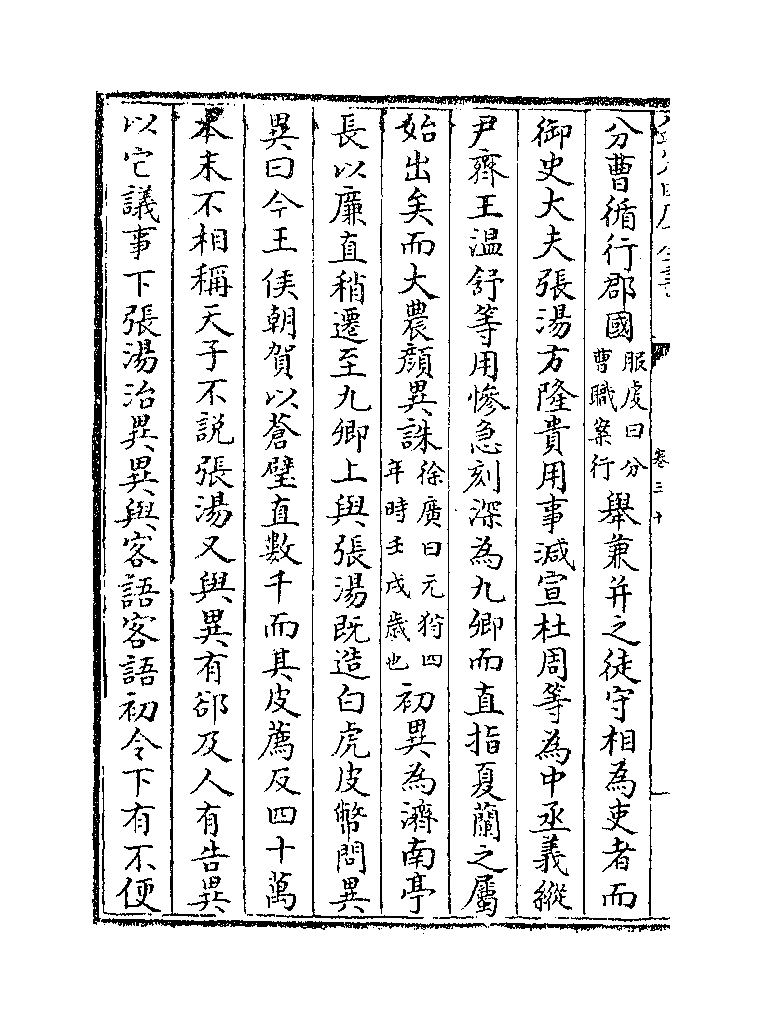 分曹循行郡國服虔曰分曹職案行舉兼并之徒守相為吏者而
御史大夫張湯方隆貴用事減宣杜周等為中丞義縱
尹齊王溫舒等用慘急刻深為九卿而直指夏蘭之屬
始出矣而大農顏異誅徐廣曰元狩四年時壬戌歲也初異為濟南亭
長以廉直稍遷至九卿上與張湯既造白虎皮幣問異
異曰今王侯朝賀以蒼璧直數千而其皮薦反四十萬
本末不相稱天子不說張湯又與異有郤及人有告異
以它議事下張湯治異異與客語客語初令下有不便
卷三十